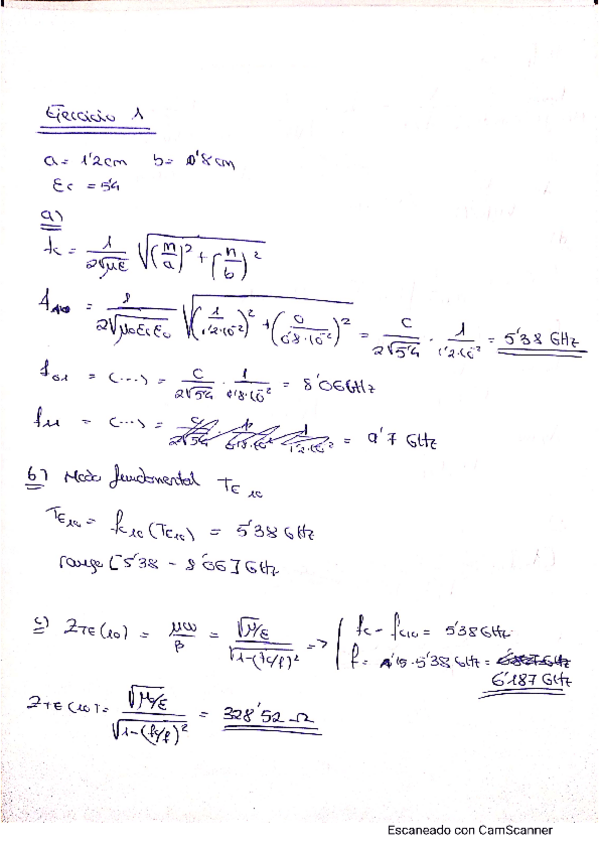 Ejercicio 1
a = 1'2cm b = 0'8cm
εr = 5'4
a)
fc = 1/(2√με) √((m/a)² + (n/b)²)
f10 = 1/(2√μ0εrε0) √((1/(1'2·10⁻²))² + (0/(0'8·10⁻²))²) = c/(2√5'4) · 1/(1'2·10⁻²) = 5'38 GHz
f01 = (...) = c/(2√5'4) · 1/(0'8·10⁻²) = 8'06GHz
f11 = (...) = 9'7 GHz
b) Modo fundamental TE10
TE10 = fc10 (TE10) = 5'38 GHz
range [5'38 - 8'06] GHz
c) ZTE(10) = μω/β = √(μ/ε)/√(1-(fc/f)²) =>
fc = fc10 = 5'38GHz
f = 1'15·5'38 GHz =
6'187 GHz
ZTE(10) = √(μ/ε)/√(1-(fc/f)²) = 328'52 Ω
Escaneado con CamScanner